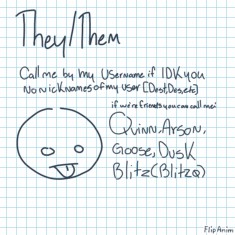 They/Them
Call me by my username if IDK you
No nicknames of my user [Dost,Dos,etc]
if we're friends you can call me:
Quinn, Arson,
Goose, Dusk
Blitz(BlitzQ)
FlipAnim